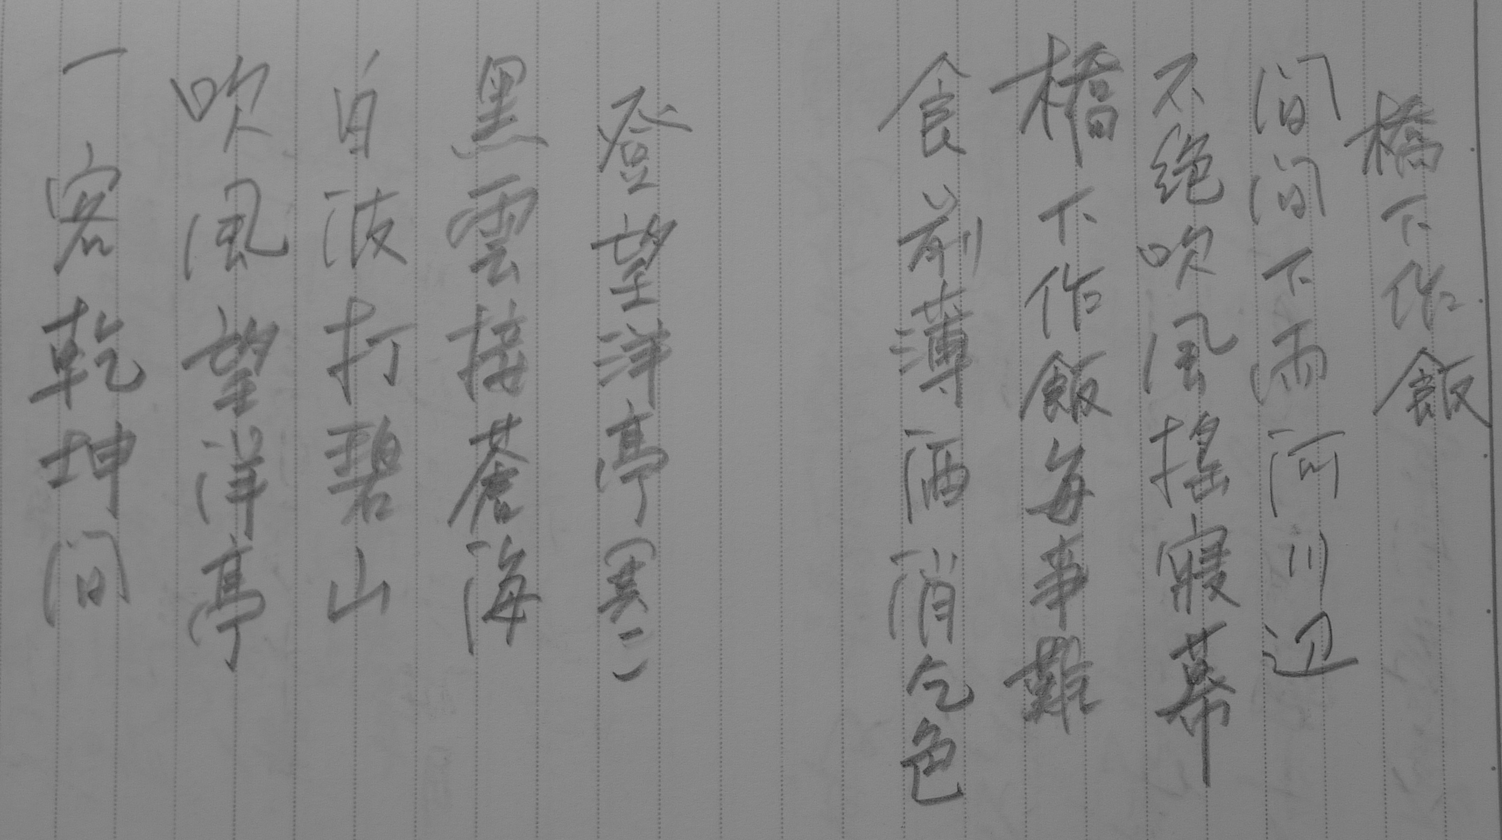 橋下作飯
间间下雨河川辺
不絶吹風揺寝幕
橋下作飯每事難
食前薄酒消乞色
登望洋亭(其二)
黑雲接蒼海
白波打碧山
吹風望洋亭
一客乾坤间